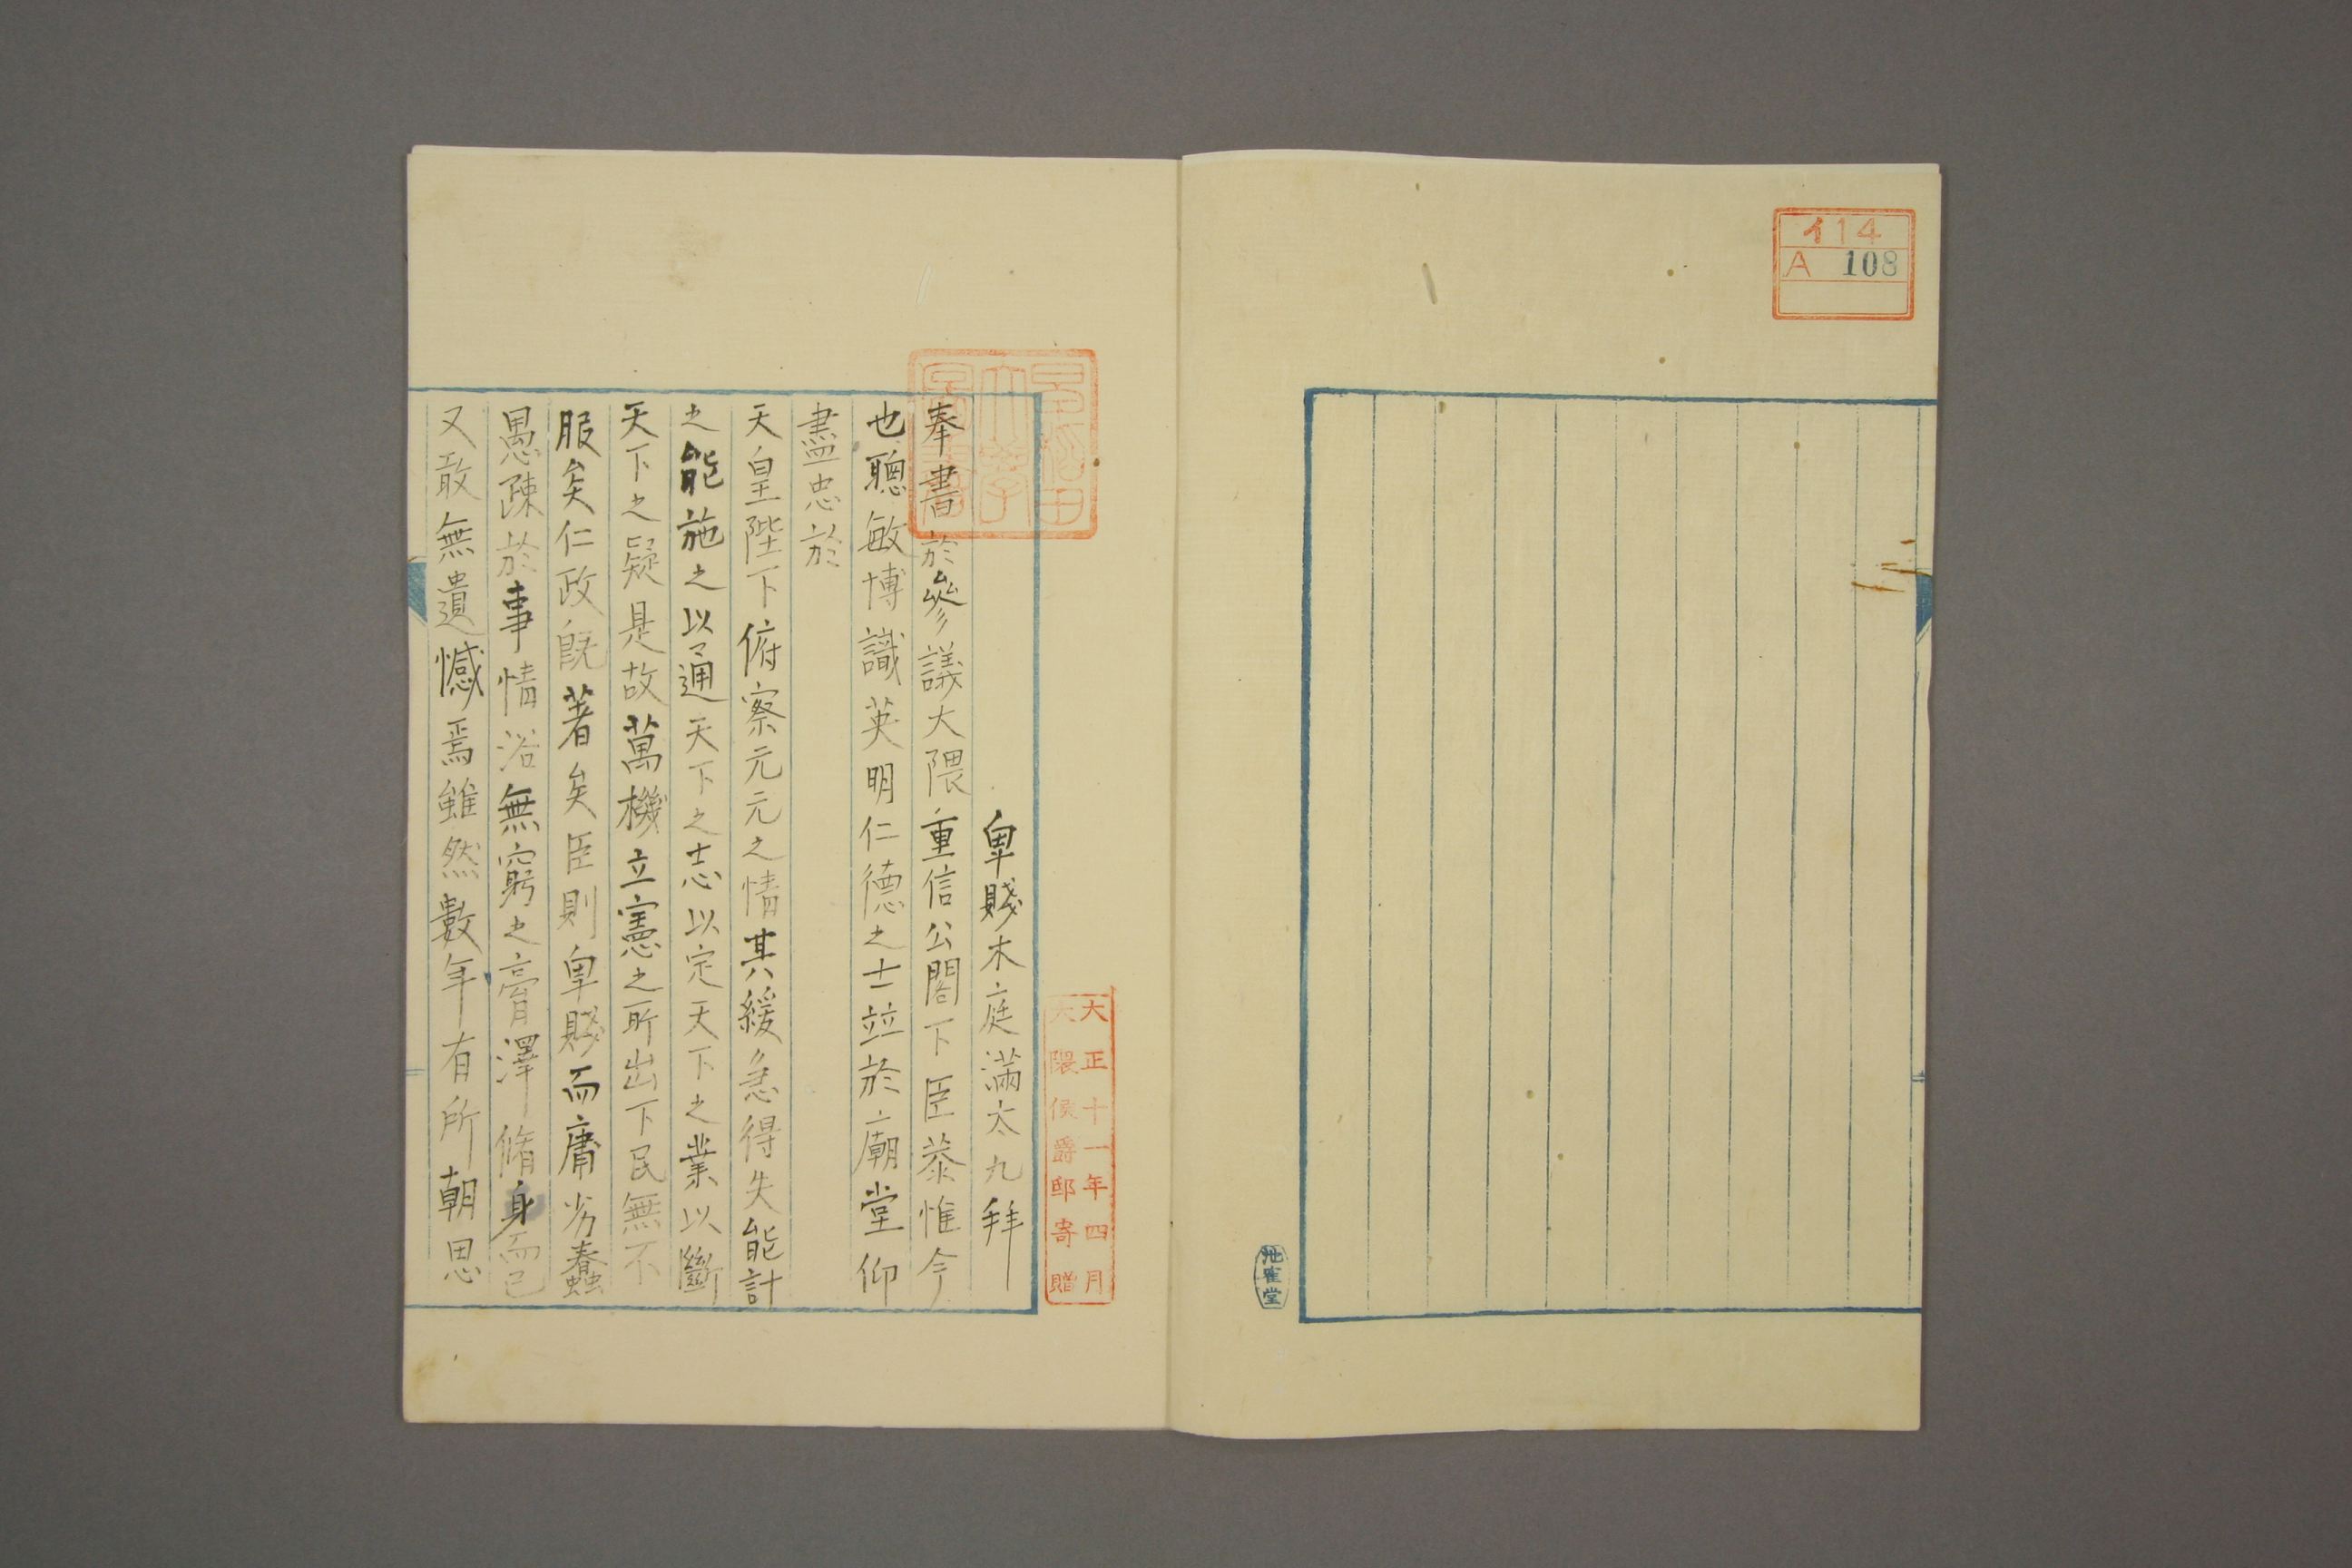 イ14
A 108
池雀堂
早稲田
大學
圖書
大正十一年四月
大隈侯爵邸寄贈
卑賤木庭滿太九拜
奉書於參議大隈重信公閣下臣恭惟今
也聰敏博識英明仁德之士竝於廟堂仰
盡忠於
天皇陛下俯察元元之情其緩急得失能計
之能施之以通天下之志以定天下之業以斷
天下之疑是故萬機立憲之所出下民無不
服矣仁政既著矣臣則卑賤而庸劣蠢
愚疎於事情浴無窮之膏澤脩身而已
又敢無遺憾焉雖然數年有所朝思